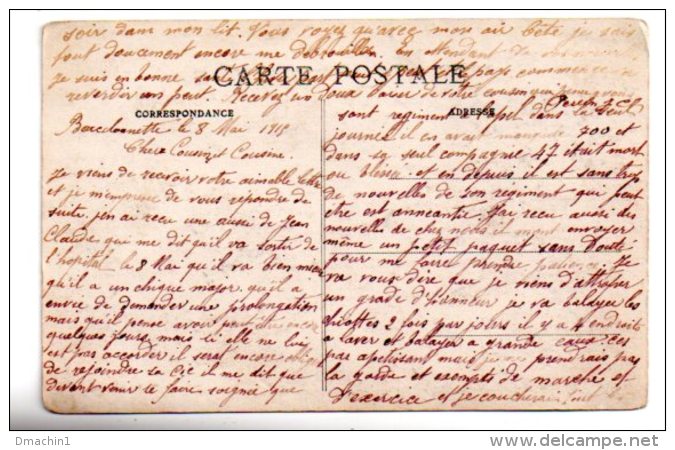 soir dans mon lit. Vous voyez qu'avec mon air bête je sais
tout doucement encore me débrouiller. En attendant de
je suis en bonne le pays commence
reverdir un peut. Recevez un doux baiser de votre cousin qui
CARTE POSTALE
CORRESPONDANCE
ADRESSE
Barcelonnette le 8 Mai 1915
Cher Cousin et Cousine
Je viens de recevoir votre aimable lettre
et je m'empresse de vous repondre de
suite, j'en ai recu une aussi de Jean
Claude qui me dit qu'il va sortir de
l'hopital le 8 Mai qu'il va bien mieux
qu'il a un chique major qu'il a
envie de demander une prolongation
mais qu'il pense avoir peut être encore
quelques jours mais si elle ne lui
est pas accorder il serat encore obligé
de rejoindre sa Cie il me dit que
devant venir se faire soignée que
sont regiment l'appel dans la seul
journée il en avait manqué 700 et
dans sa seul compagnie 47 était mort
ou blesser et en depuis il est sans trop
de nouvelles de son regiment qui peut
être est aneantie. J'ai recu aussi des
nouvelles de chez nous il mont envoyer
même un petit paquet sans doute
pour me faire prendre patience. Je
va vous dire que je viens d'attraper
un grade d'honneur je va balayer les
chiottes 2 fois par jours il y a 4 endroits
a laver et balayer a grande eaux ces
pas apetissant mais je ne prendrais pas
la garde et exempts de marche et
d'exercice et je coucherai tout
Dmachin1
delcampe.net